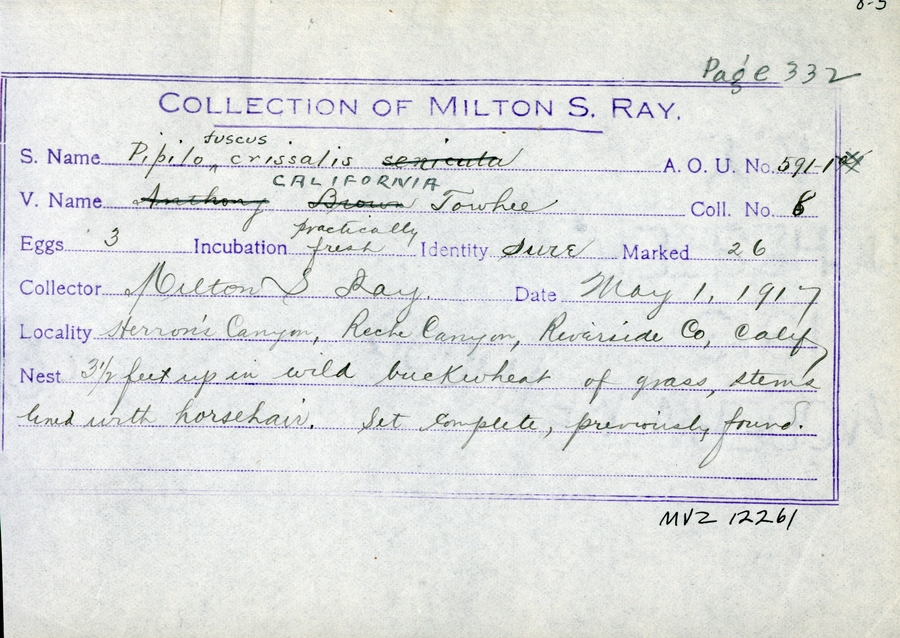 8-5
Page 332
COLLECTION OF MILTON S. RAY.
fuscus
S. Name Pipilo ‸ crissalis senicula A. O. U. No. 591-1
CALIFORNIA
V. Name Anthony Brown Towhee Coll. No. 6
practically
Eggs 3 Incubation fresh Identity Sure Marked 26
Collector Milton S Ray. Date May 1, 1917
Locality Herron's Canyon, Reche Canyon, Riverside Co, Calif
Nest 3½ feet up in wild buckwheat of grass, stems
lined with horsehair. Set complete, previously found.
MVZ 12261